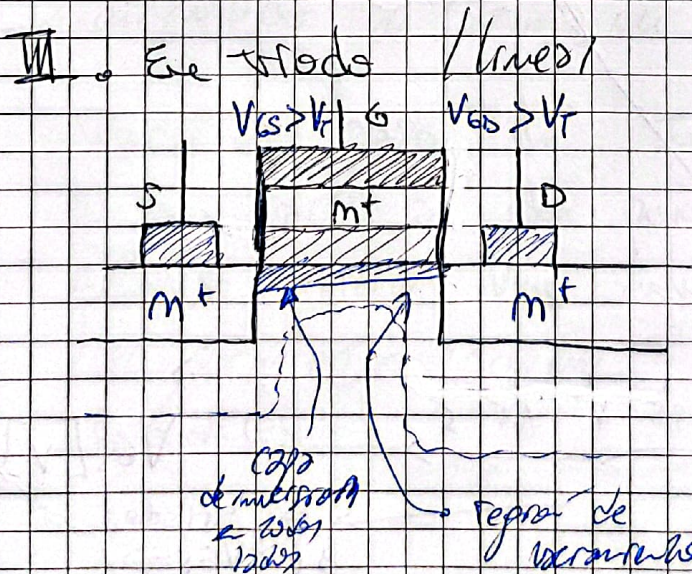 III. En triodo / lineal
V_GS > V_T G V_GD > V_T
S n+ D
n+ n+
capa
de inversión
en todos
lados
región de
vaciamiento